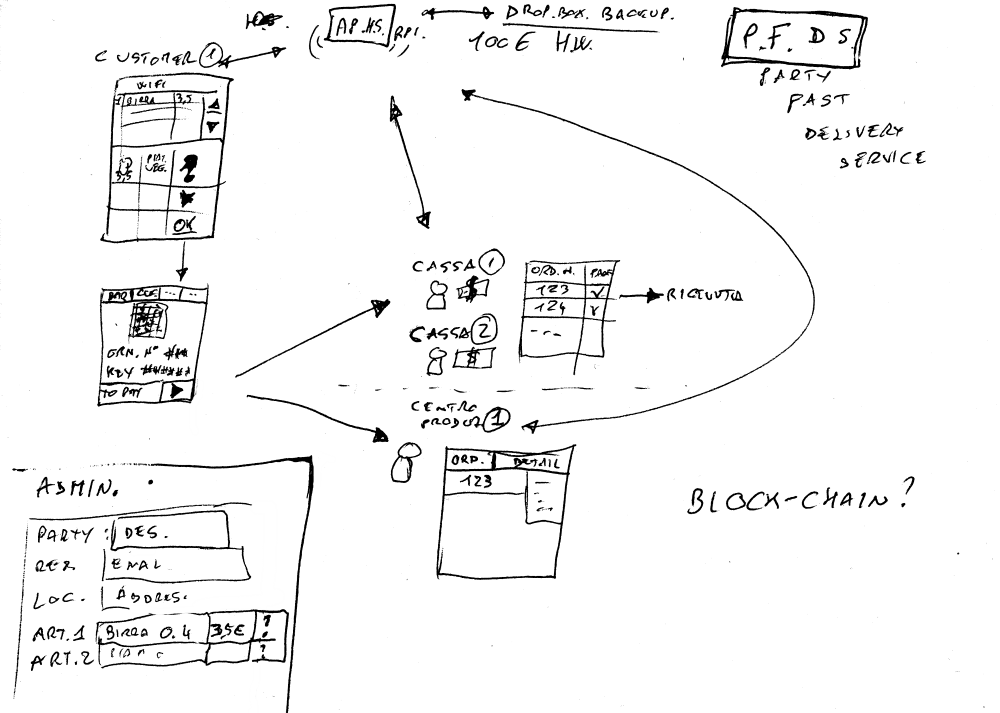 AP.H.S.
RPI.
DROP.BOX. BACKUP.
100E H.W.
P.F. D S
PARTY
PAST
DELIVERY
SERVICE
CUSTOMER 1
WIFI
1 BIRRA 3,5
3,5
OK
BAR
ORN. N° ###
KEY ######
TO PAY
CASSA 1
$
CASSA 2
$
ORD. N.
123 V
124 V
---
CENTRO
PRODUZ 1
ORD. DETAIL
123
BLOCK-CHAIN?
ADMIN.
PARTY : DES.
REF. EMAL
LOC. ADDRES.
ART.1 BIRRA 0.4 3,5E ?
ART.2 ?